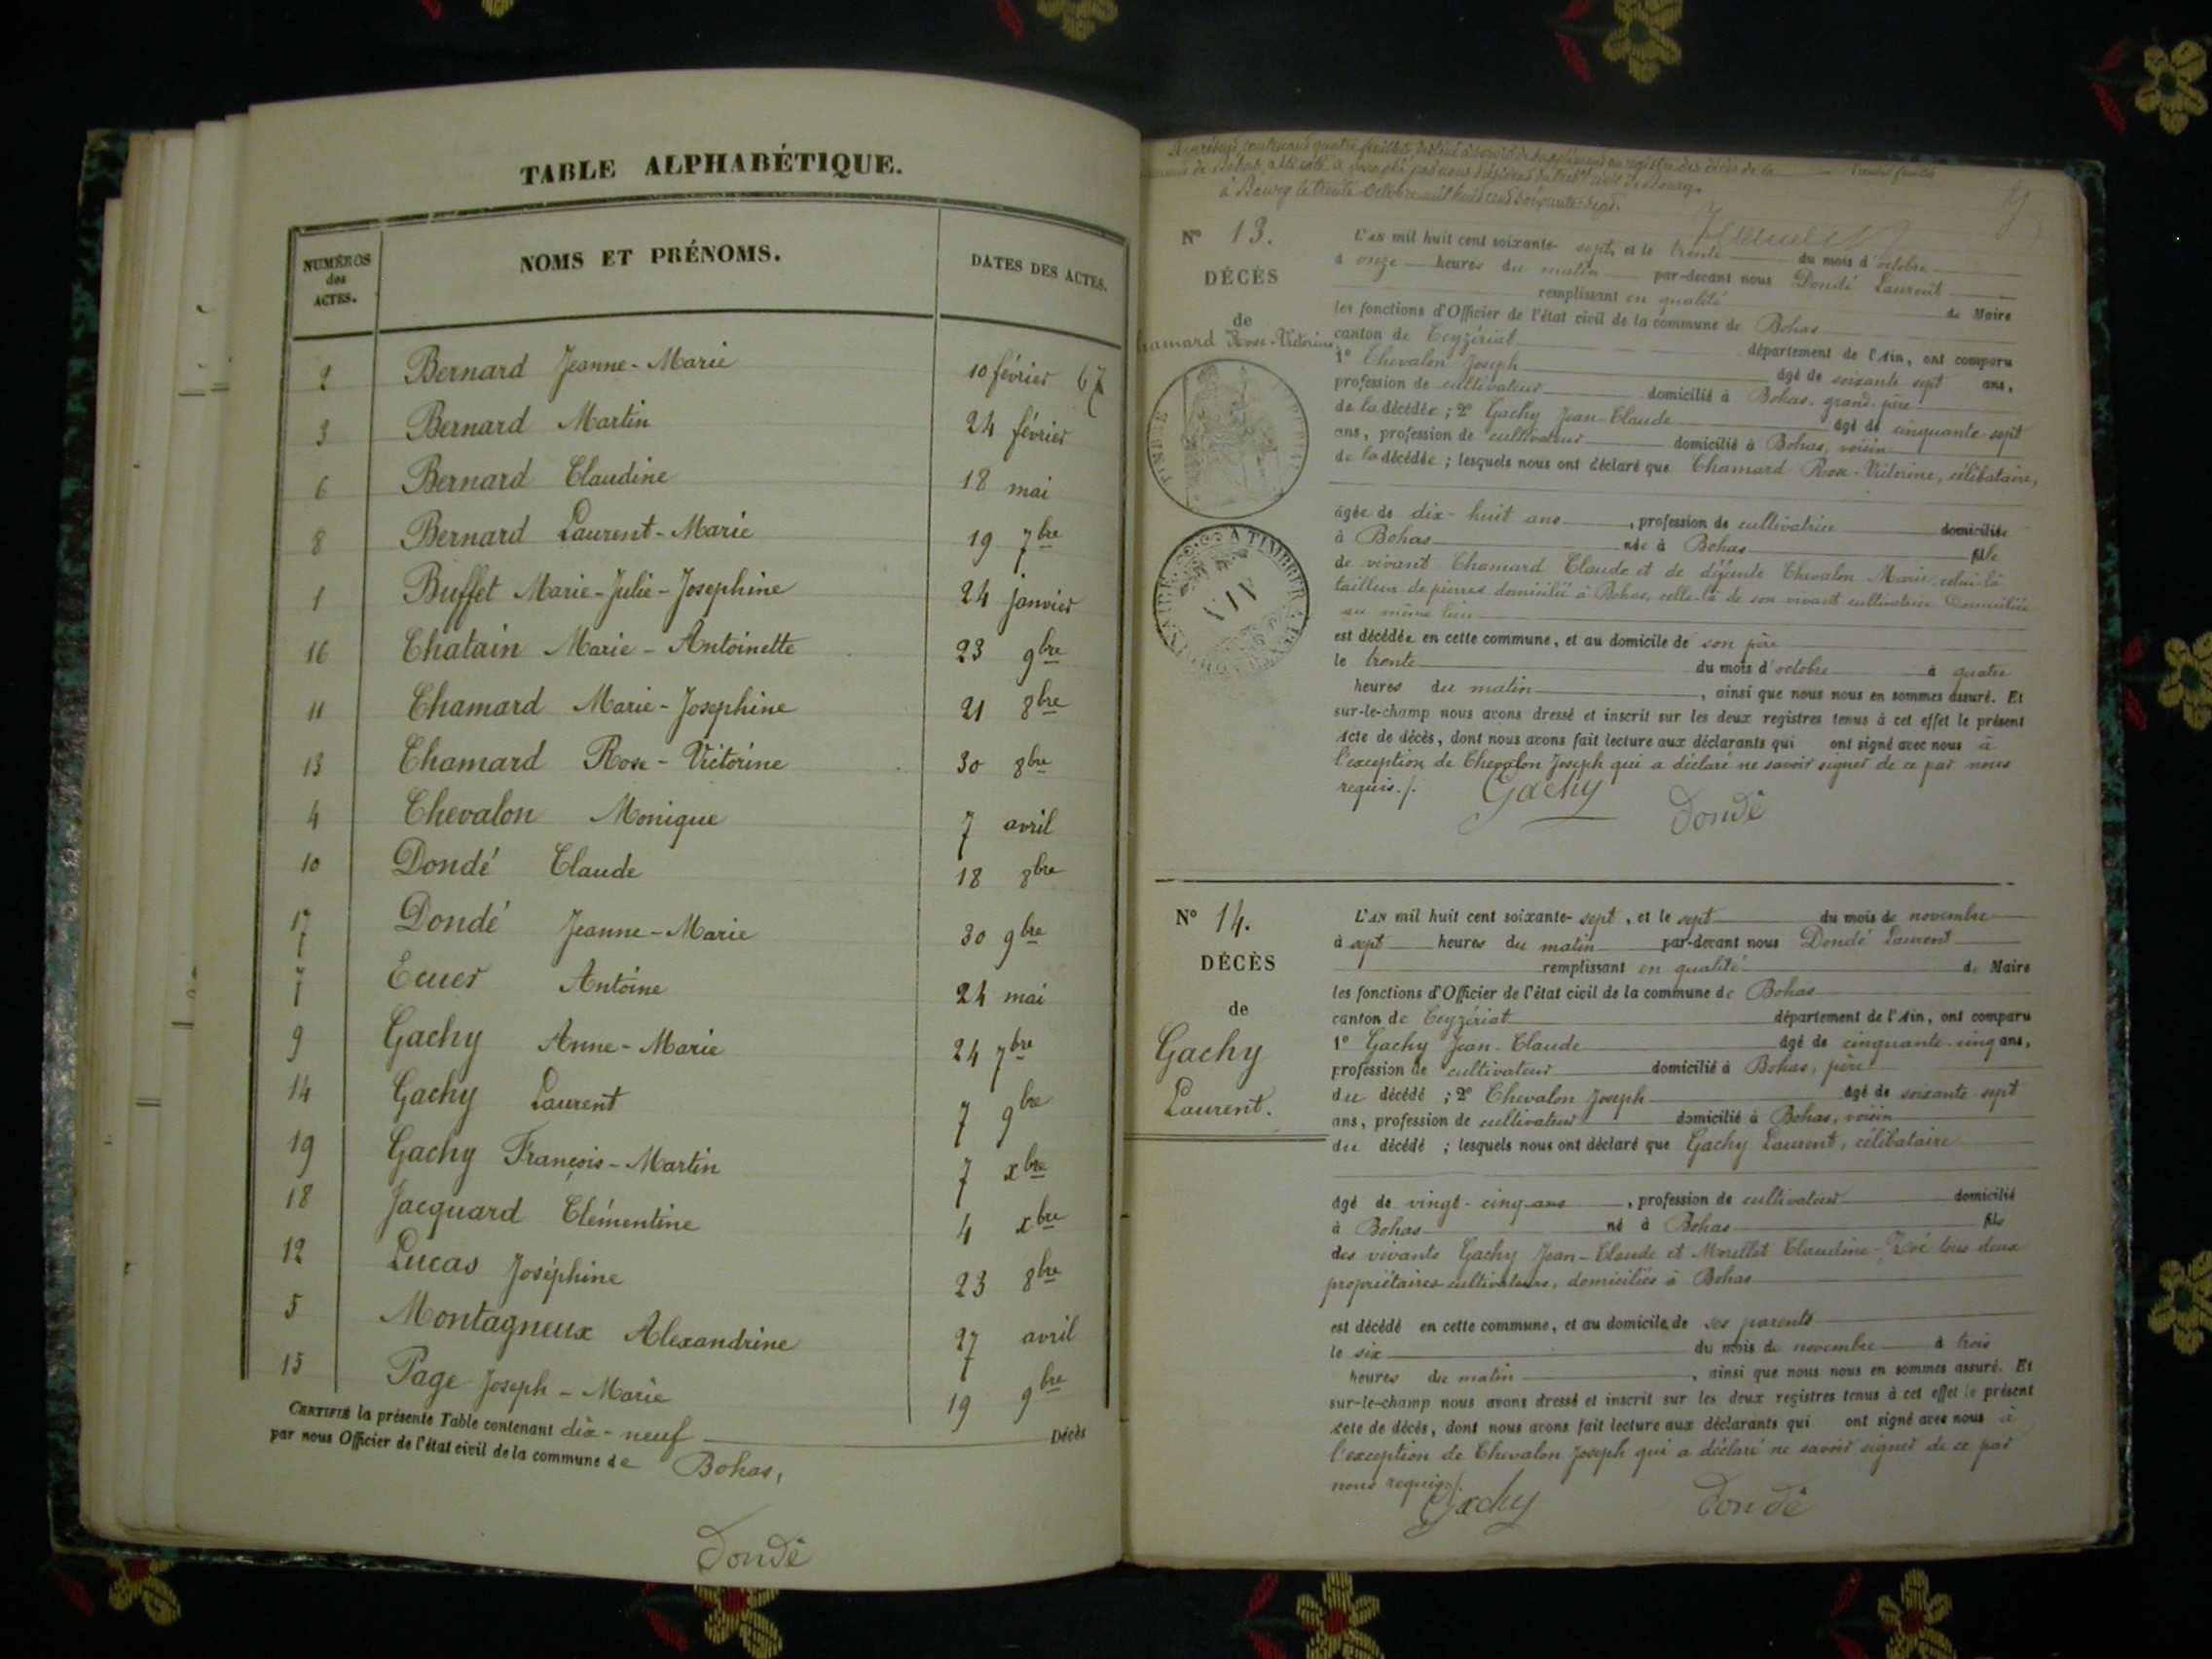 TABLE ALPHABÉTIQUE.
NUMÉROS des ACTES. NOMS ET PRÉNOMS. DATES DES ACTES.
2 Bernard Jeanne-Marie 10 février 67
3 Bernard Martin 24 février
6 Bernard Claudine 18 mai
8 Bernard Laurent-Marie 19 7bre
1 Buffet Marie-Julie-Josephine 24 janvier
16 Chatain Marie-Antoinette 23 9bre
11 Chamard Marie-Josephine 21 8bre
13 Chamard Rose-Victorine 30 8bre
4 Chevalon Monique 7 avril
10 Dondé Claude 18 8bre
17 Dondé Jeanne-Marie 30 9bre
7 Ecuer Antoine 24 mai
9 Gachy Anne-Marie 24 7bre
14 Gachy Laurent 7 9bre
19 Gachy François-Martin 7 xbre
18 Jacquard Clémentine 4 xbre
12 Lucas Joséphine 23 8bre
5 Montagneux Alexandrine 27 avril
15 Page Joseph-Marie 19 9bre
CERTIFIÉ la présente Table contenant dix-neuf Décès
par nous Officier de l'état civil de la commune de Bohas,
Dondé
contenant quatre feuillets destiné à servir de supplément au registre des décès de la
de Bohas, a été coté & paraphé par nous Président du trib civil de Bourg.
à Bourg le trente Octobre mil huit cent soixante-sept.
N° 13.
DÉCÈS
de
hamard Rose-Victorine
L'AN mil huit cent soixante-sept, et le trente du mois d'octobre
à onze heures du matin par-devant nous Dondé Laurent
remplissant en qualité de Maire
les fonctions d'Officier de l'état civil de la commune de Bohas
canton de Ceyzériat département de l'Ain, ont comparu
1° Chevalon Joseph âgé de soixante sept ans,
profession de cultivateur domicilié à Bohas, grand-père
de la décédée ; 2° Gachy Jean-Claude âgé de cinquante-sept
ans, profession de cultivateur domicilié à Bohas, voisin
de la décédée ; lesquels nous ont déclaré que Chamard Rose-Victorine, célibataire,
âgée de dix-huit ans, profession de cultivatrice domiciliée
à Bohas née à Bohas fille
de vivant Chamard Claude et de défunte Chevalon Marie, celui-là
tailleur de pierres domicilié à Bohas, celle-là de son vivant cultivatrice domiciliée
au même lieu
est décédée en cette commune, et au domicile de son père
le trente du mois d'octobre à quatre
heures du matin, ainsi que nous nous en sommes assuré. Et
sur-le-champ nous avons dressé et inscrit sur les deux registres tenus à cet effet le présent
acte de décès, dont nous avons fait lecture aux déclarants qui ont signé avec nous à
l'exception de Chevalon Joseph qui a déclaré ne savoir signer de ce par nous
requis./.
Gachy Dondé
N° 14.
DÉCÈS
de
Gachy
Laurent.
L'AN mil huit cent soixante-sept, et le sept du mois de novembre
à sept heures du matin par-devant nous Dondé Laurent
remplissant en qualité de Maire
les fonctions d'Officier de l'état civil de la commune de Bohas
canton de Ceyzériat département de l'Ain, ont comparu
1° Gachy Jean-Claude âgé de cinquante-cinq ans,
profession de cultivateur domicilié à Bohas, père
du décédé ; 2° Chevalon Joseph âgé de soixante-sept
ans, profession de cultivateur domicilié à Bohas, voisin
du décédé ; lesquels nous ont déclaré que Gachy Laurent, célibataire
âgé de vingt-cinq ans, profession de cultivateur domicilié
à Bohas né à Bohas fils
des vivants Gachy Jean-Claude et Morellet Claudine-Zoé tous deux
propriétaires cultivateurs, domiciliés à Bohas
est décédé en cette commune, et au domicile de ses parents
le six du mois de novembre à trois
heures du matin, ainsi que nous nous en sommes assuré. Et
sur-le-champ nous avons dressé et inscrit sur les deux registres tenus à cet effet le présent
acte de décès, dont nous avons fait lecture aux déclarants qui ont signé avec nous à
l'exception de Chevalon Joseph qui a déclaré ne savoir signer de ce par
nous requis./.
Gachy Dondé